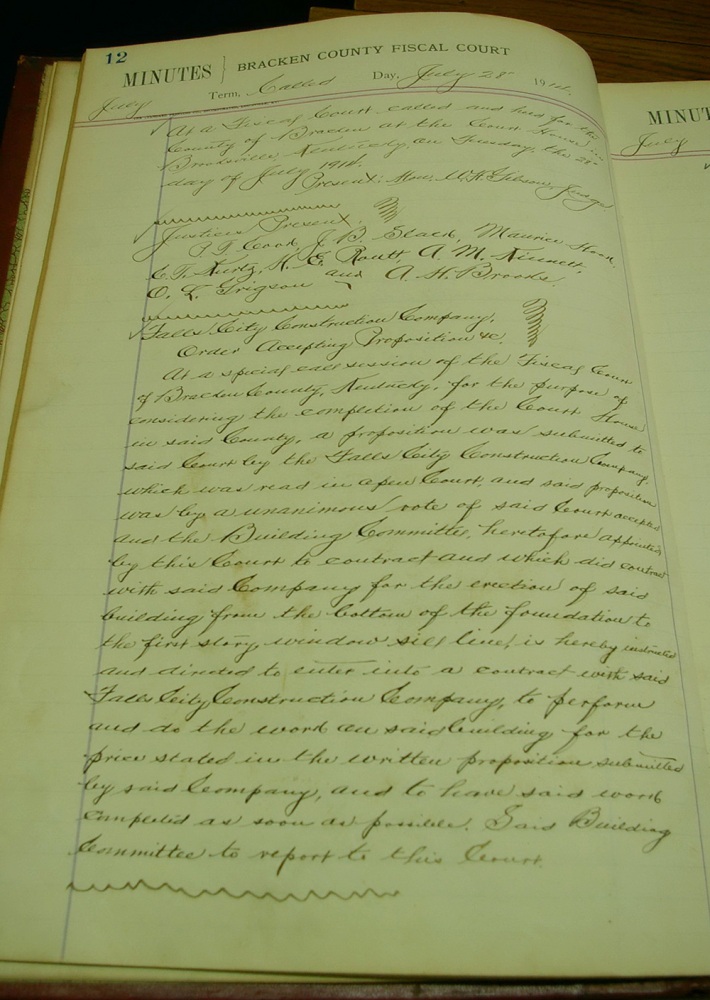 12
MINUTES BRACKEN COUNTY FISCAL COURT
July Term, Called Day, July 28" 1914.
At a Fiscal Court called and held for the
County of Bracken at the Court House in
Brooksville, Kentucky, on Tuesday, the 28"
day of July 1914.
Present: Hon. W.H. Gibson, Judge.
Justices Present.
Cook, J. B. Slack, Maurice Hook,
Kurtz, H. E. Routt A. M. Kinnett,
O. L. Grigson and A. H. Brooks.
Falls City Construction Company,
Order Accepting Proposition &c.
At a special call session of the Fiscal Court
of Bracken County, Kentucky, for the purpose of
considering the completion of the Court House
in said County, a proposition was submitted to
said Court by the Falls City Construction Company,
which was read in open Court, and said proposition
was by a unanimous vote of said Court accepted
and the Building Committee, heretofore appointed
by this Court to contract and which did contract
with said Company for the erection of said
building from the bottom of the foundation to
the first story, window sill line, is hereby instructed
and directed to enter into a contract with said
Falls City Construction Company, to perform
and do the work on said building for the
price stated in the written proposition, submitted
by said Company, and to have said work
completed as soon as possible. Said Building
Committee to report to this Court.
MINUT
July